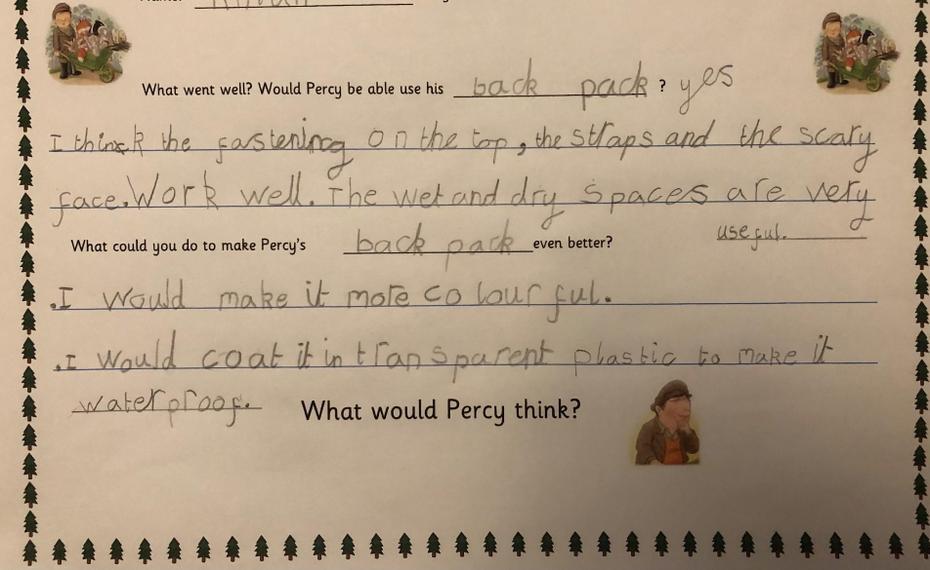 What went well? Would Percy be able use his back pack ? yes
I think the fastening on the top, the straps and the scary
face. Work well. The wet and dry spaces are very
useful.
What could you do to make Percy's back pack even better?
.I would make it more colourful.
.I would coat it in transparent plastic to make it
waterproof.
What would Percy think?